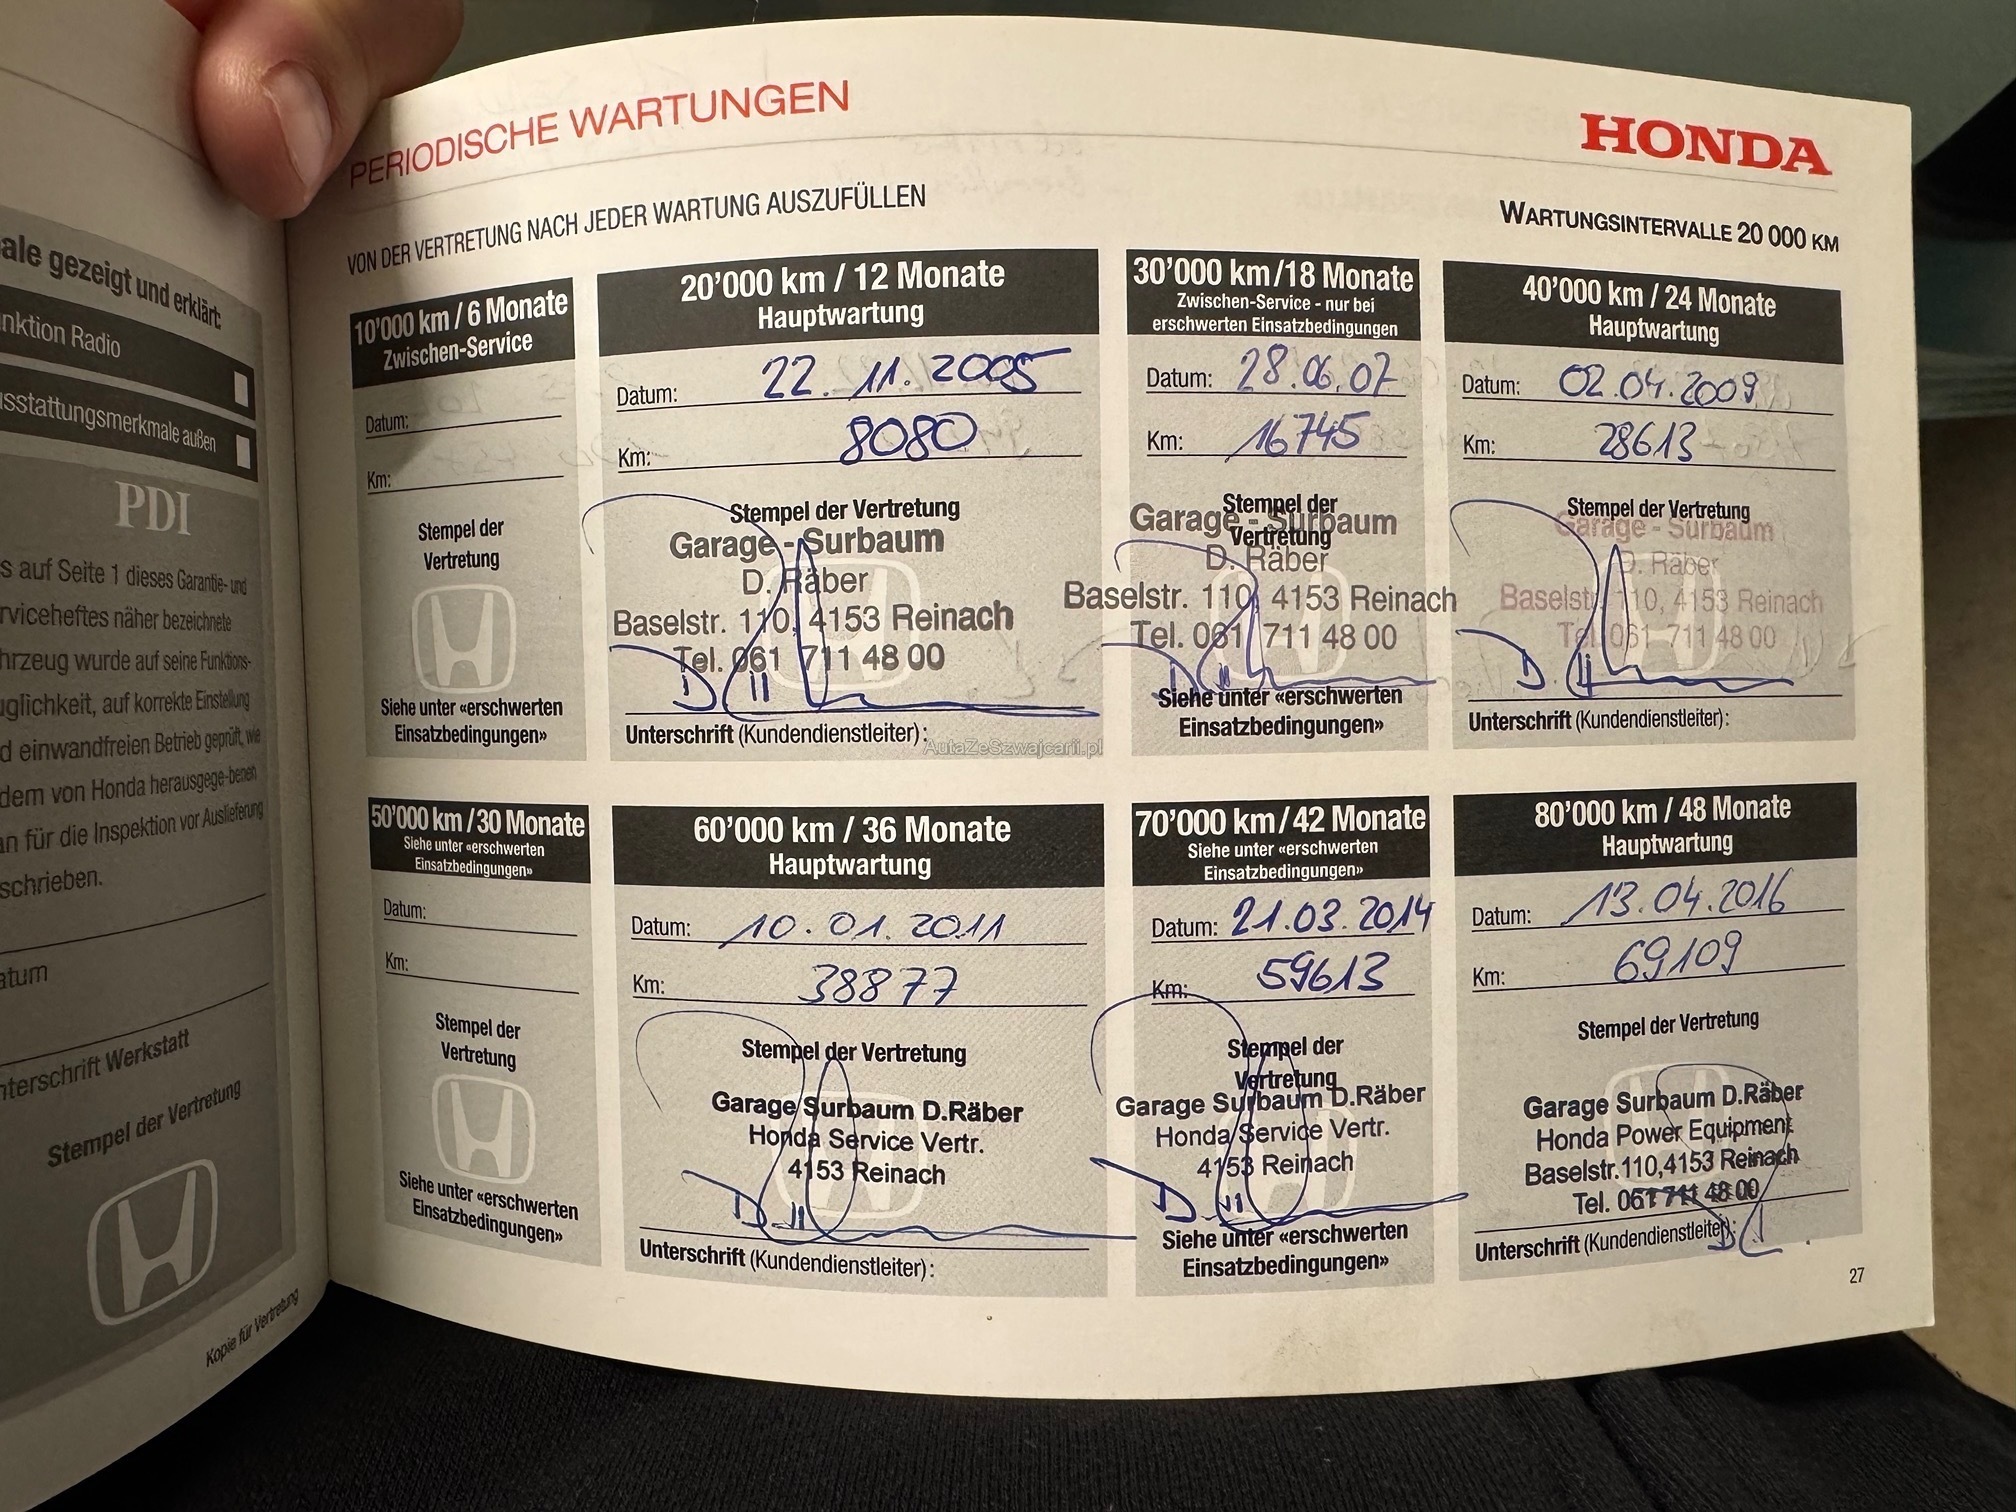 PERIODISCHE WARTUNGEN
HONDA
VON DER VERTRETUNG NACH JEDER WARTUNG AUSZUFÜLLEN
WARTUNGSINTERVALLE 20 000 KM
10'000 km / 6 Monate
Zwischen-Service
Datum:
Km:
Stempel der
Vertretung
Siehe unter «erschwerten
Einsatzbedingungen»
20'000 km / 12 Monate
Hauptwartung
Datum: 22.11.2005
Km: 8080
Stempel der Vertretung
Garage - Surbaum
D. Räber
Baselstr. 110, 4153 Reinach
Tel. 061 711 48 00
Unterschrift (Kundendienstleiter):
30'000 km/18 Monate
Zwischen-Service - nur bei
erschwerten Einsatzbedingungen
Datum: 28.06.07
Km: 16745
Stempel der
Vertretung
Garage - Surbaum
D. Räber
Baselstr. 110, 4153 Reinach
Tel. 061 711 48 00
Siehe unter «erschwerten
Einsatzbedingungen»
40'000 km / 24 Monate
Hauptwartung
Datum: 02.04.2009
Km: 28613
Stempel der Vertretung
Garage - Surbaum
D. Räber
Baselstr. 110, 4153 Reinach
Tel. 061 711 48 00
Unterschrift (Kundendienstleiter):
AutaZeSzwajcarii.pl
50'000 km/30 Monate
Siehe unter «erschwerten
Einsatzbedingungen»
Datum:
Km:
Stempel der
Vertretung
Siehe unter «erschwerten
Einsatzbedingungen»
60'000 km / 36 Monate
Hauptwartung
Datum: 10.01.2011
Km: 38877
Stempel der Vertretung
Garage Surbaum D.Räber
Honda Service Vertr.
4153 Reinach
Unterschrift (Kundendienstleiter):
70'000 km/42 Monate
Siehe unter «erschwerten
Einsatzbedingungen»
Datum: 21.03.2014
Km: 59613
Stempel der
Vertretung
Garage Surbaum D.Räber
Honda Service Vertr.
4153 Reinach
Siehe unter «erschwerten
Einsatzbedingungen»
80'000 km / 48 Monate
Hauptwartung
Datum: 13.04.2016
Km: 69109
Stempel der Vertretung
Garage Surbaum D.Räber
Honda Power Equipment
Baselstr.110,4153 Reinach
Tel. 061 711 48 00
Unterschrift (Kundendienstleiter):
27
ale gezeigt und erklärt:
nktion Radio
sstattungsmerkmale außen
PDI
s auf Seite 1 dieses Garantie- und
rviceheftes näher bezeichnete
hrzeug wurde auf seine Funktions-
uglichkeit, auf korrekte Einstellung
d einwandfreien Betrieb geprüft, wie
dem von Honda herausgege-benen
an für die Inspektion vor Auslieferung
schrieben.
atum
nterschrift Werkstatt
Stempel der Vertretung
Kopie für Vertretung